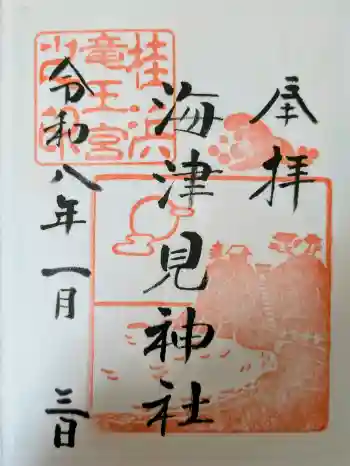 奉拝
海津見神社
令和八年一月三日
桂浜
竜王宮